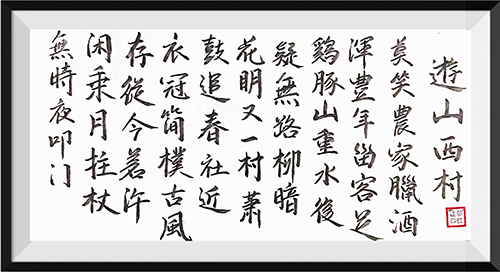 遊山西村
莫笑農家臘酒
渾豐年留客足
鷄豚山重水復
疑無路柳暗
花明又一村蕭
鼓追春社近
衣冠簡樸古風
存從今若许
闲乘月拄杖
無時夜叩门